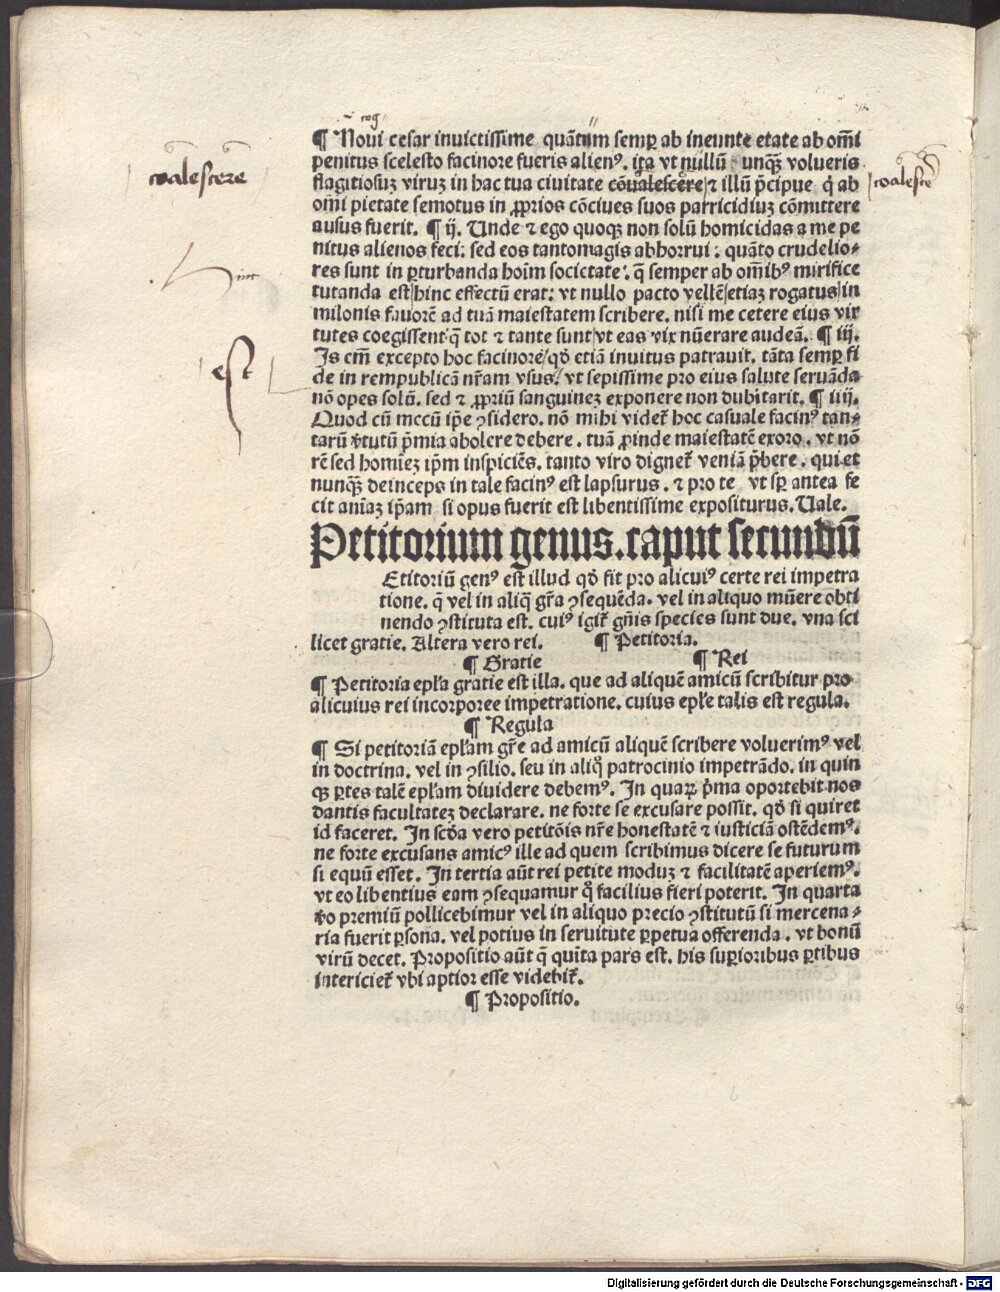 cog
¶ Noui cesar inuictissime quātum semꝑ ab ineunte etate ab om̄i
penitus scelesto facinore fueris alienꝰ. ita vt nullū unqꝫ volueris
flagitiosuꝫ viruꝫ in hac tua ciuitate cōualescere ⁊ illū p̄cipue q̇ ab
om̄i pietate semotus in ꝓprios cōciues suos parricidiuꝫ cōmittere
ausus fuerit. ¶ ij. Unde ⁊ ego quoqꝫ non solū homicidas a me pe
nitus alienos feci: sed eos tantomagis abhorrui: quāto crudelio⸗
res sunt in ꝑturbanda hoīm societate: q̄ semper ab om̄ibꝰ mirifice
tutanda est/hinc effectū erat: vt nullo pacto vellē/etiaꝫ rogatus/in
milonis fauorē ad tuā maiestatem scribere. nisi me cetere eius vir
tutes coegissent q̄ tot ⁊ tante sunt/vt eas vix nūerare audeā. ¶ iij.
Is em̄ excepto hoc facinore/qđ etiā inuitus patrauit. tāta semꝑ fi
de in rempublicā nr̄am vsus/ vt sepissime pro eius salute seruāda
nō opes solū. sed ⁊ ꝓpriū sanguineꝫ exponere non dubitarit. ¶ iiij.
Quod cū mecū ip̄e ꝯsidero. nō mihi videt̄ hoc casuale facinꝰ tan⸗
tarū v̓tutū p̄mia abolere debere. tuā ꝓinde maiestatē exoro. vt nō
rē sed homieꝫ ip̄m inspiciēs. tanto viro dignet̄ veniā p̄bere. qui et
nunqꝫ deinceps in tale facinꝰ est lapsurus. ⁊ pro te vt sꝑ antea fe
cit aniaꝫ ip̄am si opus fuerit est libentissime expositurus. Uale.
Petitorium genus. caput secundū
Etitoriū genꝰ est illud qđ fit pro alicuiꝰ certe rei impetra
tione. q̄ vel in aliq̄ gr̄a ꝯsequēda. vel in aliquo mūere obti
nendo ꝯstituta est. cuiꝰ igit̄ gn̄is species sunt due. vna sci
licet gratie. Altera vero rei. ¶ Petitoria.
¶ Gratie ¶ Rei
¶ Petitoria epl̄a gratie est illa. que ad aliquē amicū scribitur pro
alicuius rei incorporee impetratione. cuius epl̄e talis est regula.
¶ Regula
¶ Si petitoriā epl̄am gr̄e ad amicū aliquē scribere voluerimꝰ vel
in doctrina. vel in ꝯsilio. seu in aliq̊ patrocinio impetrādo. in quin
qꝫ ꝑtes talē epl̄am diuidere debemꝰ. In quaꝝ p̄ma oportebit nos
dantis facultateꝫ declarare. ne forte se excusare possit. qđ si quiret
id faceret. In scđa vero petitōis nr̄e honestatē ⁊ iusticiā ostēdemꝰ.
ne forte excusans amicꝰ ille ad quem scribimus dicere se futurum
si equū esset. In tertia aūt rei petite moduꝫ ⁊ facilitatē aperiemꝰ.
vt eo libentius eam ꝯsequamur q̊ facilius fieri poterit. In quarta
v̓o premiū pollicebimur vel in aliquo precio ꝯstitutū si mercena⸗
ria fuerit ꝑsona. vel potius in seruitute ꝑpetua offerenda. vt bonū
virū decet. Propositio aūt q̄ quīta pars est. his suꝑioribus ꝑtibus
intericiet̄ vbi aptior esse videbit̄.
¶ Propositio.
coalescere
coalescere
hinc
est
Digitalisierung gefördert durch die Deutsche Forschungsgemeinschaft - DFG